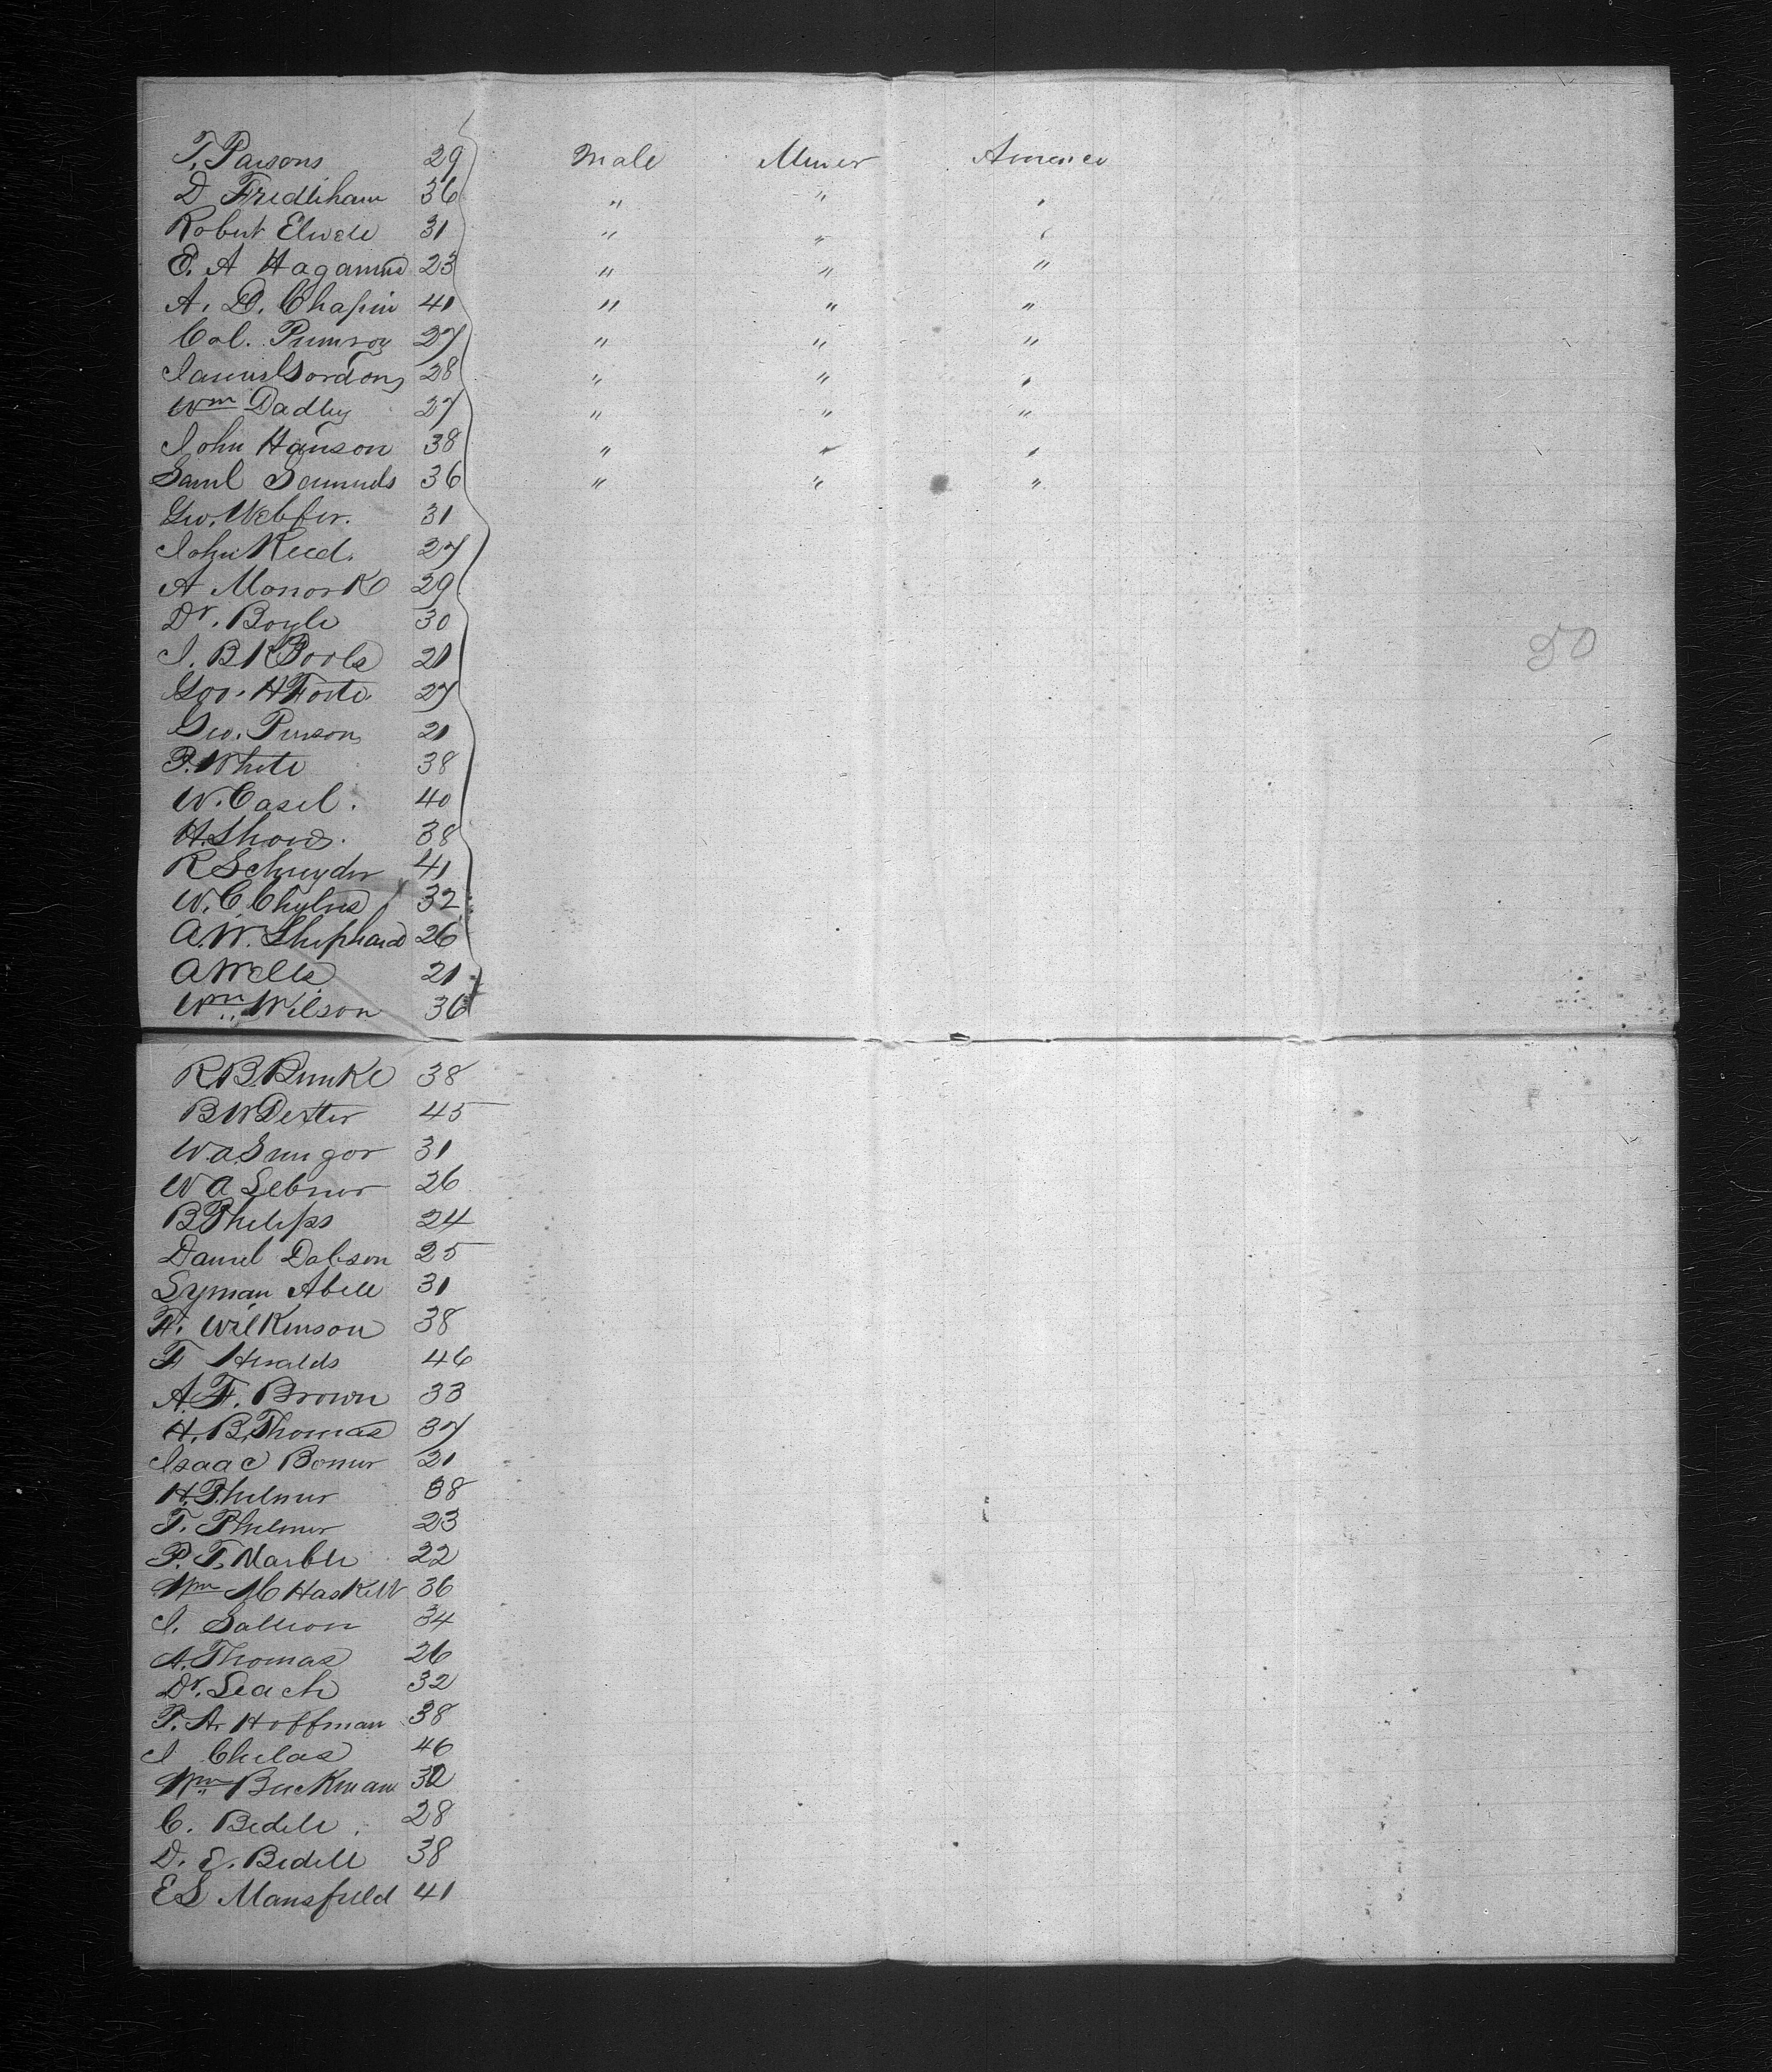 T. Parsons 29 Male Miner America
D Fredliham 36 " " "
Robert Elwell 31 " " "
E. A Hagaman 23 " " "
A. D. Chapin 41 " " "
Col. Pumroy 27 " " "
James Gordon 28 " " "
Wm Dadley 27 " " "
John Hanson 38 " " "
Saml Semmds 36 " " "
Geo. Webster. 31
John Reed. 27
A Monork 29
Dr. Boyle 30
J. B K Pools 21
Geo. H Foote. 27
Geo. Pierson 21
P. White 38
W. Casel. 40
H. Shows. 38
R Schnyder 41
W. C. Chylus 32
A. W. Shephard 26
A Wells 21
Wm Wilson 36
50
R. B. Bunke 38
B W Dexter 45
W. A. Sunger 31
W A Lebner 26
B Phelips 24
Daniel Dobson 25
Lyman Abell 31
F. Wilkinson 38
F Heralds 46
A. F. Brown 33
H. B. Thomas 37
Isaac Bomer 21
H. Phelmer 38
T. Phelmer 23
P. T. Marble 22
Wm M Haskell 36
J. Salleon 34
A. Thomas 26
Dr. Leach 32
P. A. Hoffman 38
J Chelas 46
Wm Buckman 32
C. Bedell. 28
D. E. Bedell 38
E S Mansfield 41